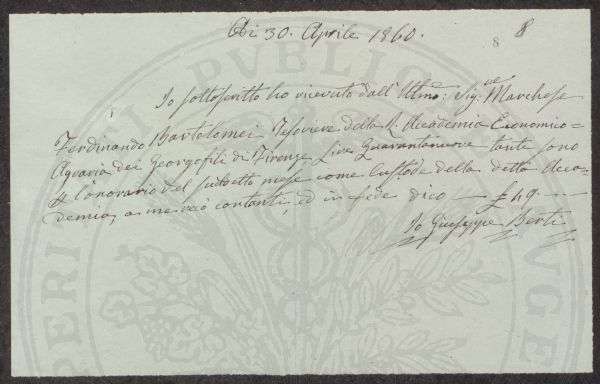 Adi 30. Aprile 1860.
8 8
Io sottoscritto ho ricevuto dall' Illmo: Sig:re Marchese
Ferdinando Bartolomei Tesoriere della R. Accademia Economico=
Agraria dei Georgofili di Firenze Lire Quarantanove tante sono
p l'onorario del suddetto mese come Custode della detta Acca=
demia, a me recò contanti, ed in fede dico — £ 49 —
Io Giuseppe Berti
PERI PUBLIC UGE